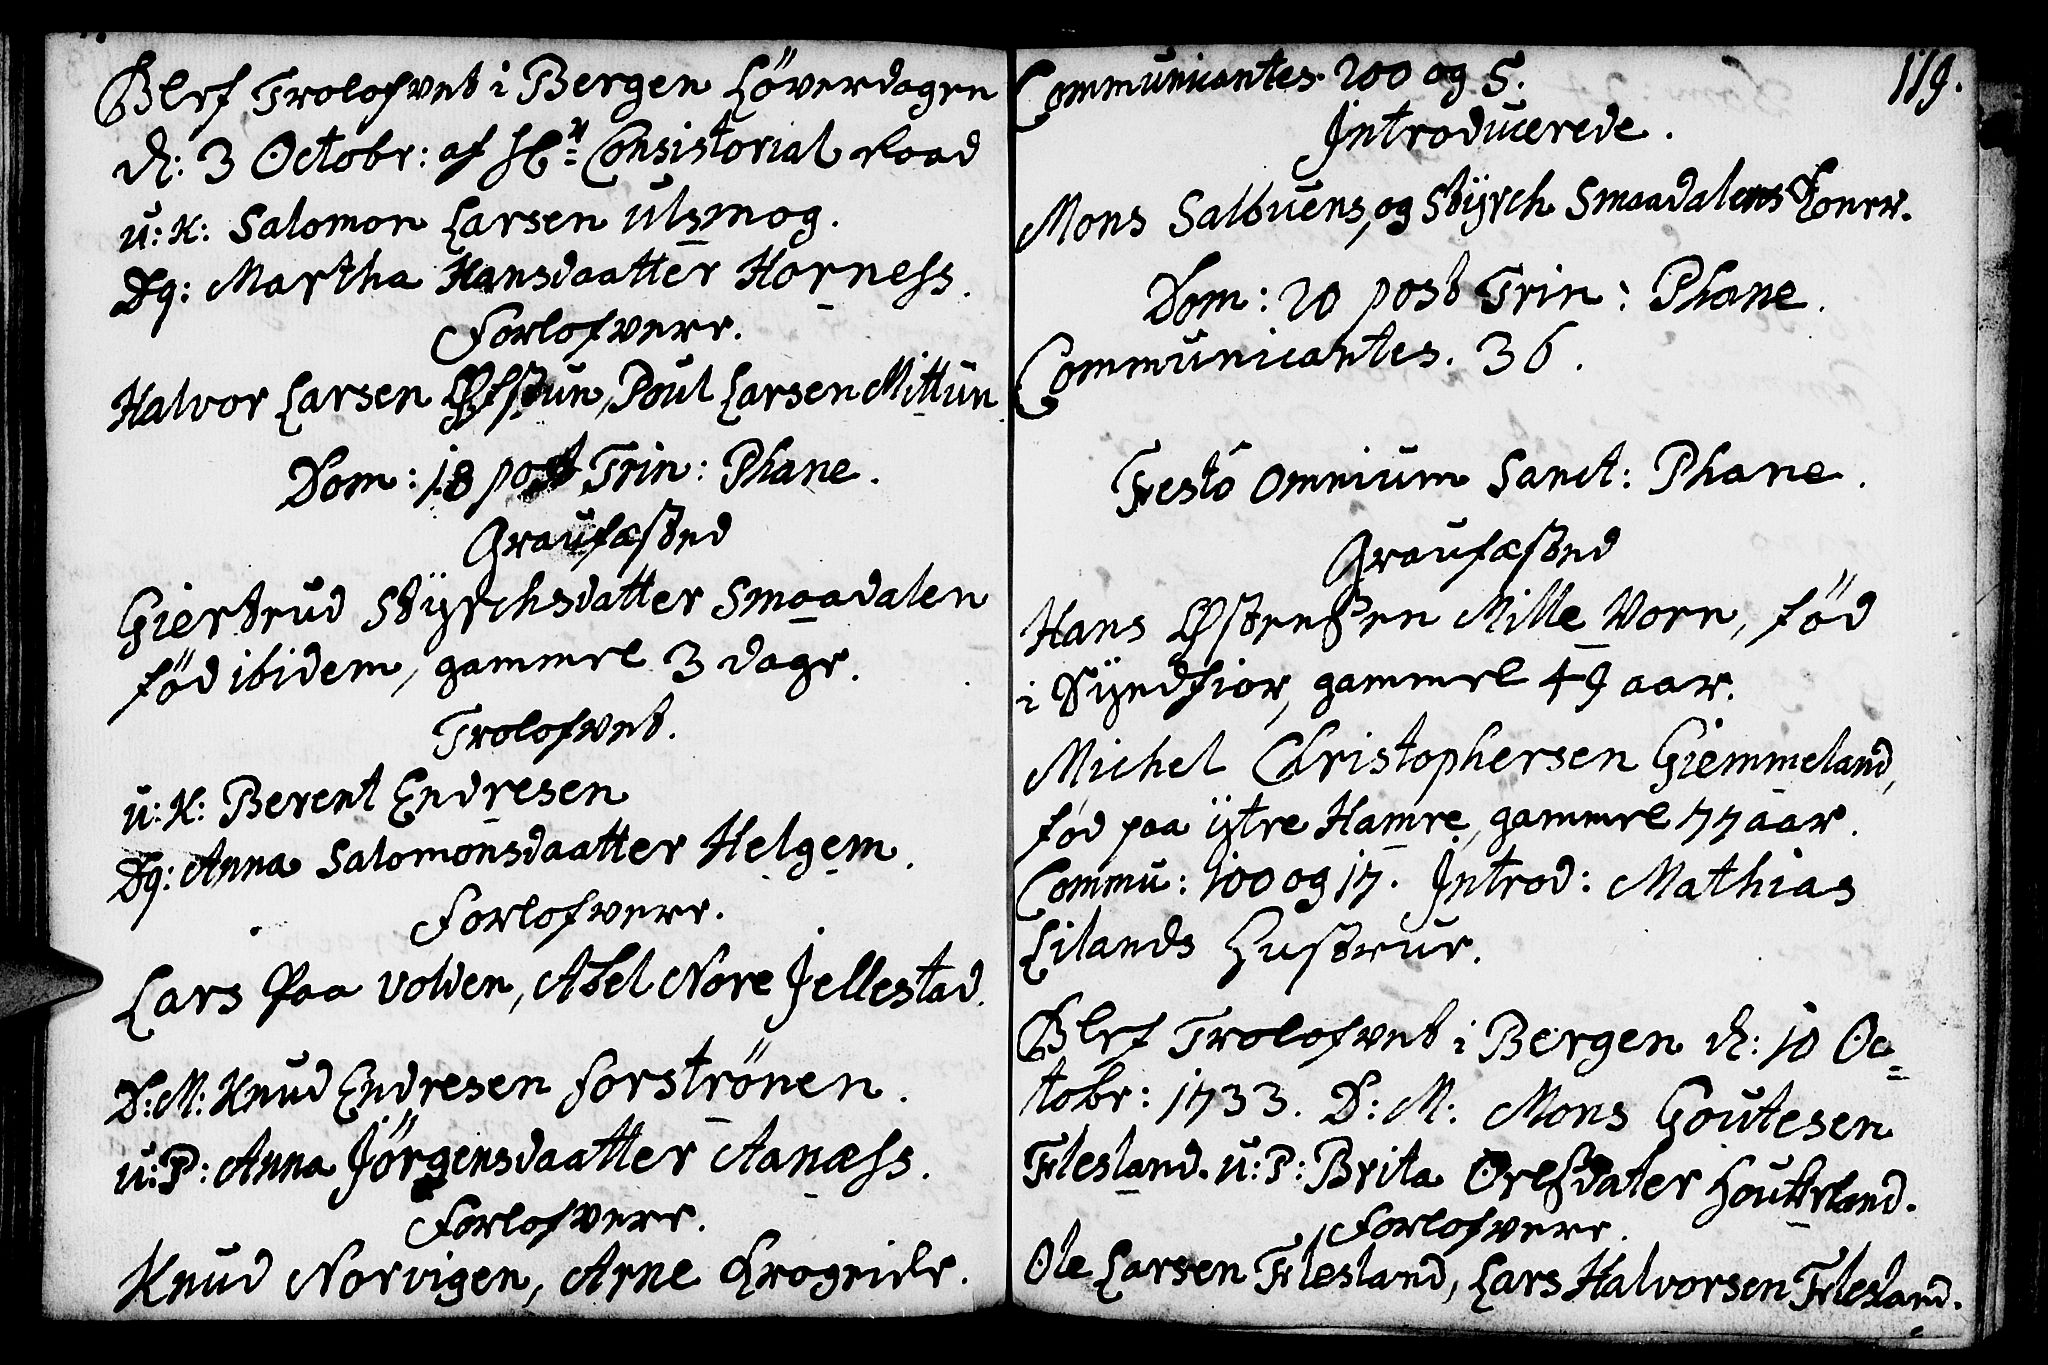 Blef Trolofvet i Bergen Löverdagen
d: 3 Octobr: af Hr Consistorial Raad
u: K: Salomon Larsen Ulsmog.
Dg: Martha Hansdaatter Horness.
Forlofvere.
Halvor Larsen Øfstun, Poul Larsen Mittun
Dom: 18 post Trin: Phane.
Graufæsted
Giertrud Styrchsdatter Smaadalen
föd ibidem, gammel 3 dage.
Trolofvet.
u: K: Berent Endresen
Dg: Anna Salomonsdaatter Helgem.
Forlofvere.
Lars Paa Volden, Abel Nore Jellestad.
D: M: Knud Endresen Forströnen.
u: P: Anna Jörgensdaatter Aanæss.
Forlofvere.
Knud Norvigen, Arne Krogeide.
119.
Communicantes. 200 og 5.
Introducerede.
Mons Salbuens, og Styrch Smaadalens Koner.
Dom: 20 post Trin: Phane.
Communicantes. 36.
Festo Omnium Sanct: Phane.
Graufæsted
Hans Østensen Mille Vorn, föd
i Syndfior, gammel 49 aar.
Michel Christophersen Giemmeland,
föd paa ÿtre Hamre, gammel 77 aar.
Commu: 100 og 17. Introd: Mathias
Lilands Hustrue.
Blef Trolofvet i Bergen d: 10 Oc=
tobr: 1733. D: M: Mons Goutesen
Flesland. u: P: Brita Olesdater Houkeland.
Forlofvere.
Ole Larsen Flesland, Lars Halvorsen Flesland.